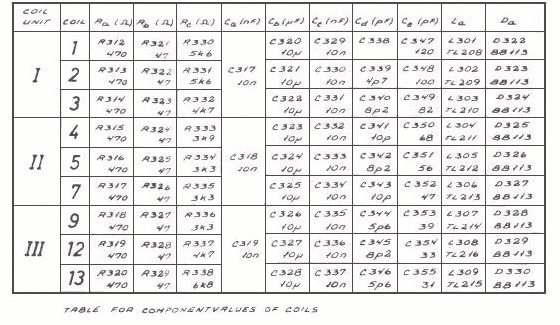 COIL UNIT COIL Ra (Ω) Rb (Ω) Rc (Ω) Ca (nF) Cb (µF) Cc (nF) Cd (pF) Ce (pF) La Da
I 1 R312 R321 R330 C317 C320 C329 C338 C347 L301 D322
470 47 5k6 10n 10µ 10n 120 TL208 BB113
2 R313 R322 R331 C321 C330 C339 C348 L302 D323
470 47 5k6 10µ 10n 4p7 100 TL209 BB113
3 R314 R323 R332 C322 C331 C340 C349 L303 D324
470 47 4k7 10µ 10n 8p2 82 TL210 BB113
II 4 R315 R324 R333 C318 C323 C332 C341 C350 L304 D325
470 47 3k9 10n 10µ 10n 10p 68 TL211 BB113
5 R316 R325 R334 C324 C333 C342 C351 L305 D326
470 47 3k3 10µ 10n 8p2 56 TL212 BB113
7 R317 R326 R335 C325 C334 C343 C352 L306 D327
470 47 3k3 10µ 10n 10p 47 TL213 BB113
III 9 R318 R327 R336 C319 C326 C335 C344 C353 L307 D328
470 47 3k3 10n 10µ 10n 5p6 39 TL214 BB113
12 R319 R328 R337 C327 C336 C345 C354 L308 D329
470 47 4k7 10µ 10n 8p2 33 TL216 BB113
13 R320 R329 R338 C328 C337 C346 C355 L309 D330
470 47 6k8 10µ 10n 5p6 31 TL215 BB113
TABLE FOR COMPONENTVALUES OF COILS